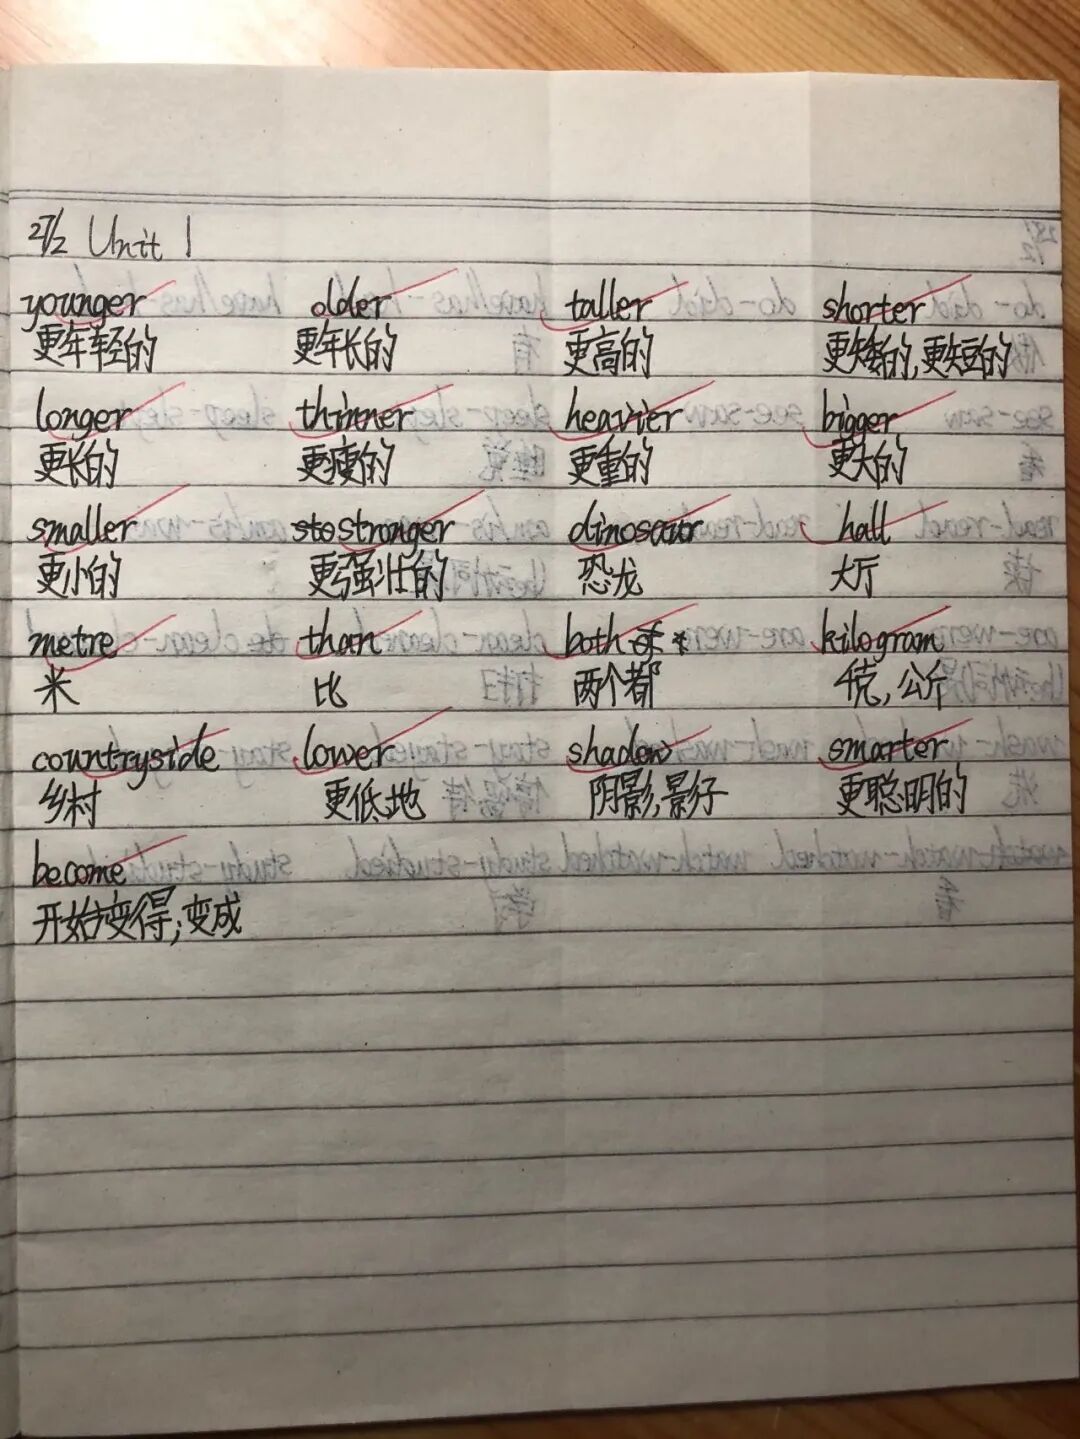 27/2 Unit 1
younger older taller shorter
更年轻的 更年长的 更高的 更矮的,更短的
longer thinner heavier bigger
更长的 更瘦的 更重的 更大的
smaller stronger dinosaur hall
更小的 更强壮的 恐龙 大厅
metre than both kilogram
米 比 两个都 千克,公斤
countryside lower shadow smarter
乡村 更低地 阴影,影子 更聪明的
become
开始变得;变成